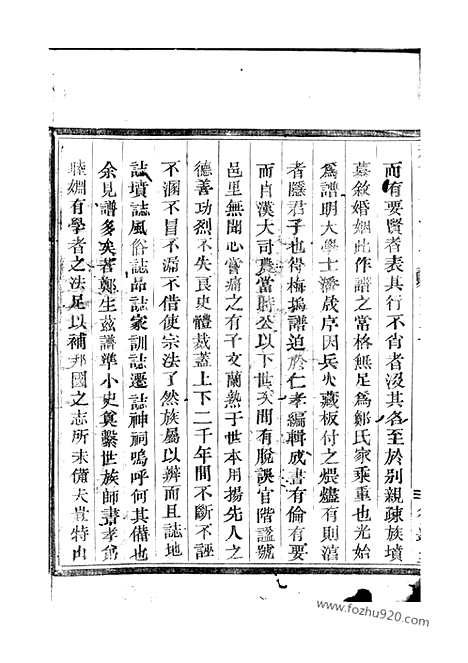 而有要賢者表其行不肖者沒其名至於別親疎族墳
墓敘婚姻此作譜之當格無足爲鄭氏家乘重也光始
爲譜明大學士潘晟序因兵火藏板付之煨燼有則淯
者隱君子也得梅塢譜迫於仁孝編輯成書有倫有要
而自漢大司農當時公以下世次間有脫誤官階謚號
邑里無聞心嘗痛之有子文蘭熱于世本用揚先人之
德善功烈不失良史體裁蓋上下二千年間不斷不誣
不溷不冒不漏不借使宗法了然族屬以辨而且誌地
誌墳誌風俗誌節誌家訓誌遷誌神祠嗚呼何其備也
余見譜多矣若鄭生茲譜準小史奠繫世族師書孝
睦婣有學者之法足以補邦國之志所未備夫豈特山
www.fozhu920.com